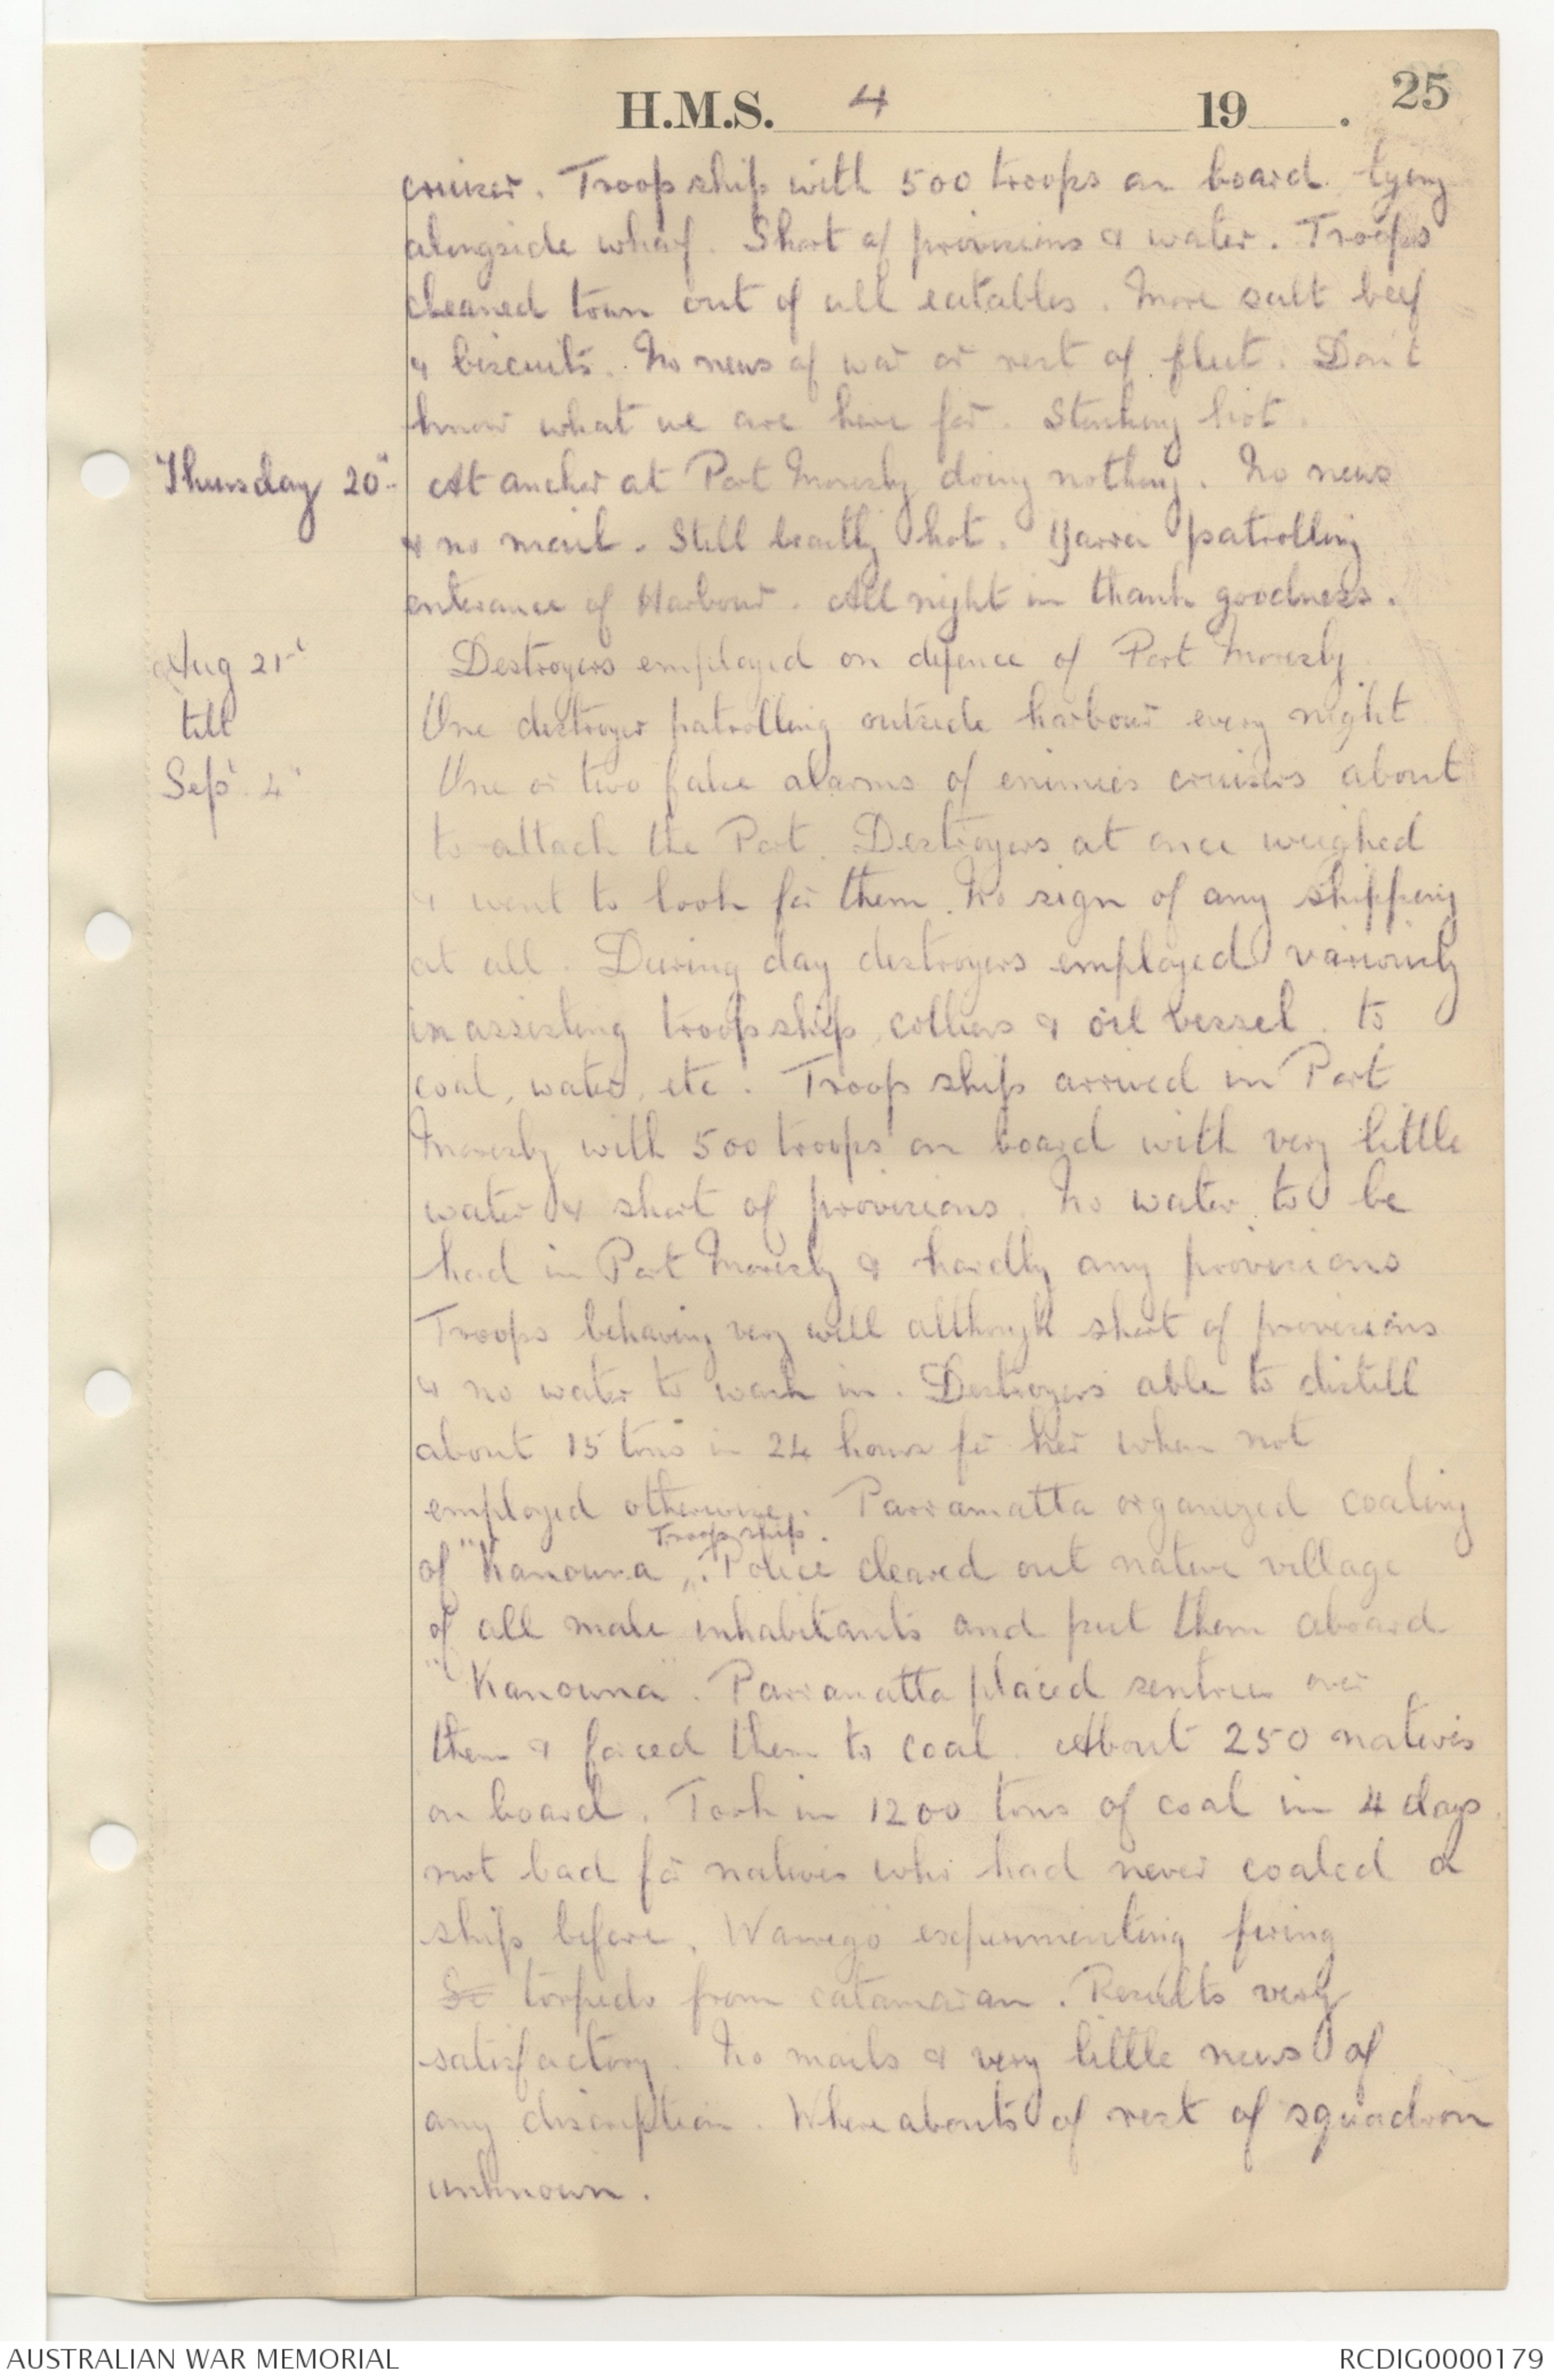 25
H.M.S. 4 19 .
cruiser. Troop ship with 500 troops on board lying
alongside wharf. Short of provisions & water. Troops
cleaned town out of all eatables. More salt beef
& biscuits. No news of war or rest of fleet. Don't
know what we are here for. Stinking hot.
Thursday 20th At anchor at Port Moresby doing nothing. No news
& no mail. Still beastly hot. Yarra patrolling
enterance of Harbour. All night in thank goodness.
Aug 21st Destroyers employed on defence of Port Moresby
till One destroyer patrolling outside harbour every night
Sept. 4th One or two false alarms of enimies cruisers about
to attack the Port. Destroyers at once weighed
& went to look for them. No sign of any shipping
at all. During day destroyers employed variously
in assisting troopship, colliers & oil vessel to
coal, water, etc. Troop ship arrived in Port
Moresby with 500 troops on board with very little
water & short of provisions. No water to be
had in Port Moresby & hardly any provisions
Troops behaving very well although short of provisions
& no water to wash in. Destroyers able to distill
about 15 tons in 24 hours for her when not
employed otherwise. Parramatta organized coaling
Troop ship.
of "Kanowna". Police cleared out native village
of all male inhabitants and put them aboard
"Kanowna". Parramatta placed sentries over
them & forced them to coal. About 250 natives
on board. Took in 1200 tons of coal in 4 days.
not bad for natives who had never coaled a
ship before. Warrego experimenting firing
torpedo from catamaran. Results very
satisfactory. No mails & very little news of
any discription. Whereabouts of rest of squadron
unknown.
AUSTRALIAN WAR MEMORIAL
RCDIG0000179